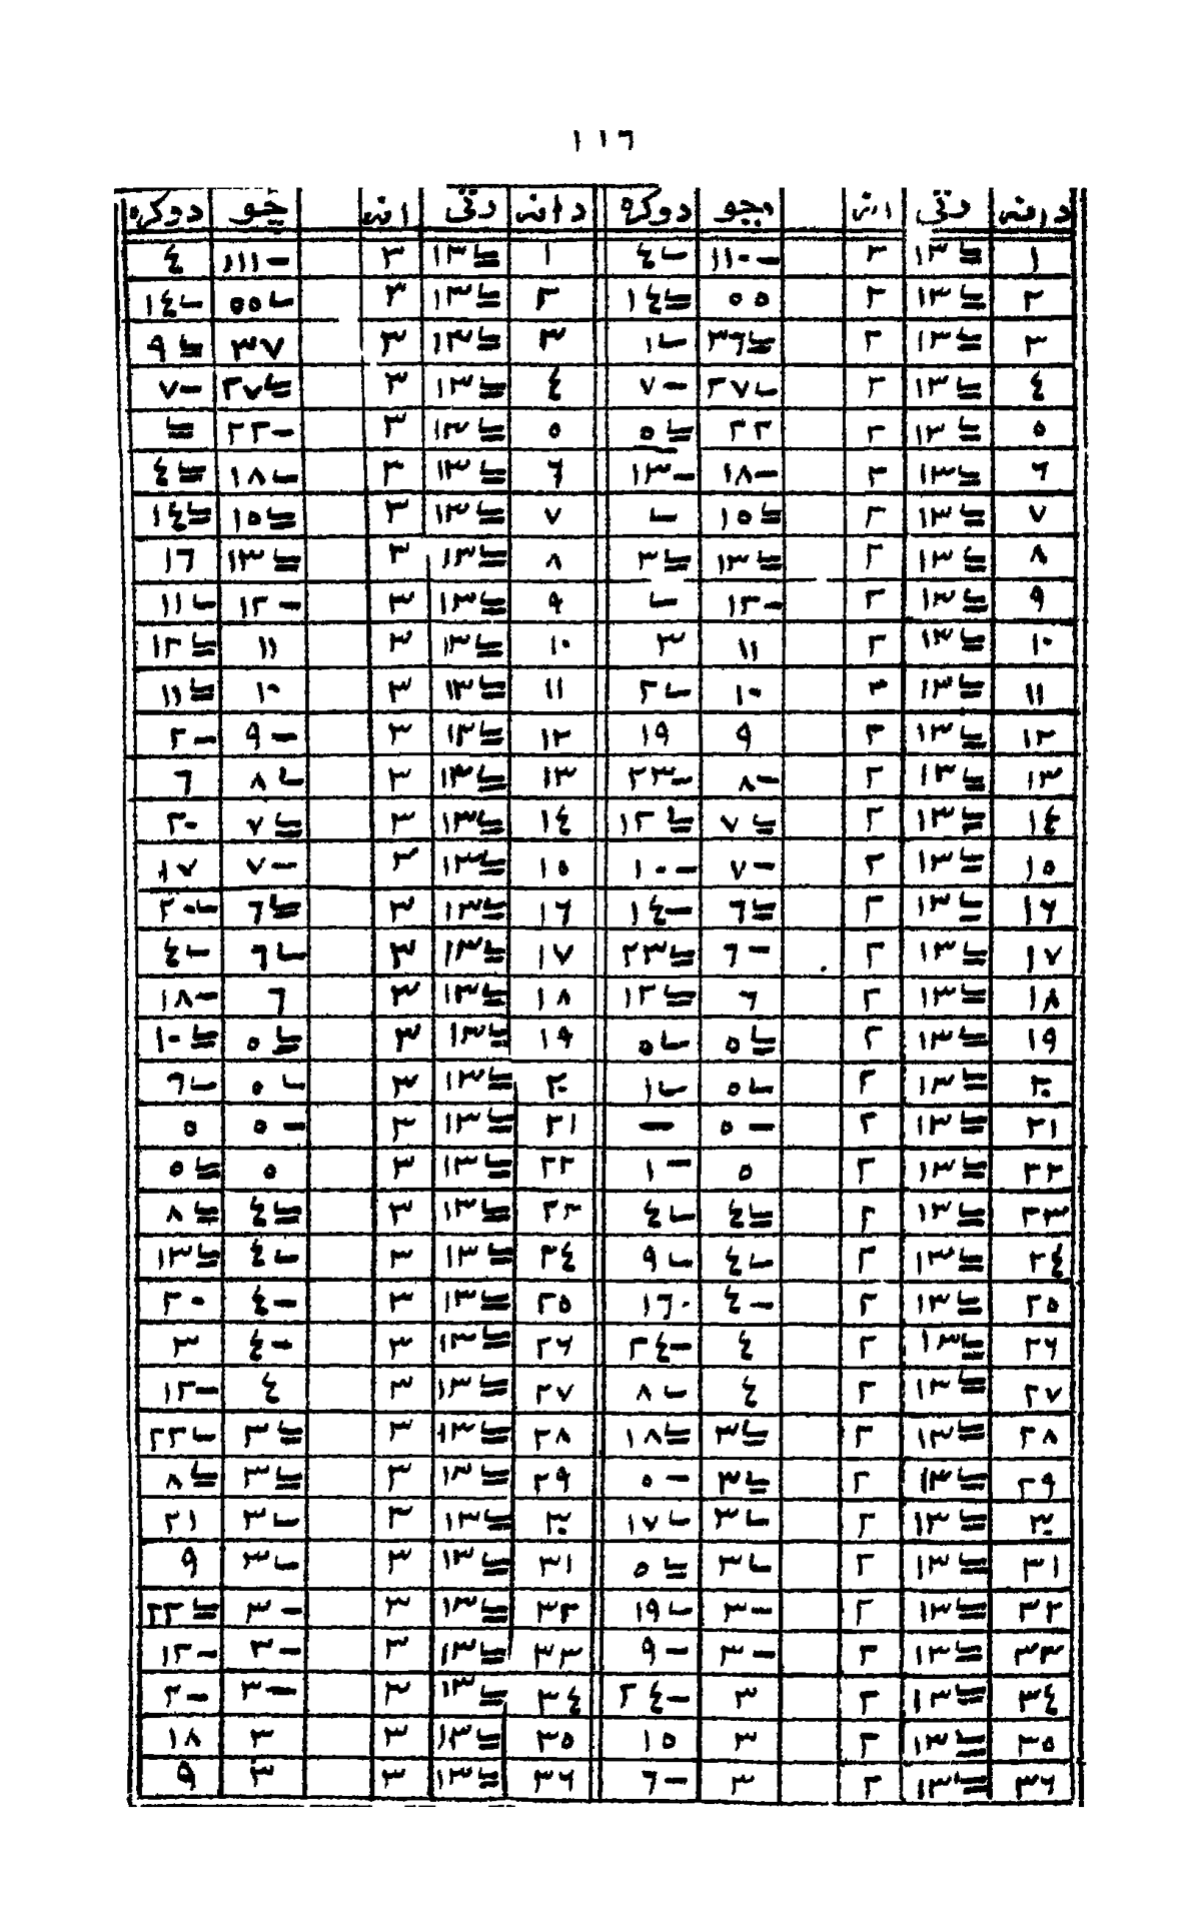 ١١٦
دانه رتي انه چو دوكره دانه رتي انه چو دوكره
١ ١٣ ٢ - ١١٠ ٤ ١ ١٣ ٣ - ١١١ ٤
٢ ١٣ ٢ ٥٥ ١٤ ٢ ١٣ ٣ ٥٥ ١٤
٣ ١٣ ٢ ٣٦ ١ ٣ ١٣ ٣ ٣٧ ٩
٤ ١٣ ٢ ٢٧ - ٧ ٤ ١٣ ٣ ٢٧ - ٧
٥ ١٣ ٢ ٢٢ ٥ ٥ ١٣ ٣ - ٢٢
٦ ١٣ ٢ - ١٨ - ١٣ ٦ ١٣ ٣ ١٨ ٤
٧ ١٣ ٢ ١٥ ٧ ١٣ ٣ ١٥ ١٤
٨ ١٣ ٢ ١٣ ٣ ٨ ١٣ ٣ ١٣ ١٦
٩ ١٣ ٢ - ١٢ ٩ ١٣ ٣ - ١٢ ١١
١٠ ١٣ ٢ ١١ ٣ ١٠ ١٣ ٣ ١١ ١٢
١١ ١٣ ٢ ١٠ ٢ ١١ ١٣ ٣ ١٠ ١١
١٢ ١٣ ٢ ٩ ١٩ ١٢ ١٣ ٣ - ٩ - ٢
١٣ ١٣ ٢ - ٨ - ٢٣ ١٣ ١٣ ٣ ٨ ٦
١٤ ١٣ ٢ ٧ ١٢ ١٤ ١٣ ٣ ٧ ٢٠
١٥ ١٣ ٢ - ٧ - ١٠ ١٥ ١٣ ٣ - ٧ ١٧
١٦ ١٣ ٢ ٦ - ١٤ ١٦ ١٣ ٣ ٦ ٢٠
١٧ ١٣ ٢ - ٦ ٢٣ ١٧ ١٣ ٣ ٦ ٤
١٨ ١٣ ٢ ٦ ١٢ ١٨ ١٣ ٣ ٦ - ١٨
١٩ ١٣ ٢ ٥ ٥ ١٩ ١٣ ٣ ٥ ١٠
٢٠ ١٣ ٢ ٥ ١ ٢٠ ١٣ ٣ ٥ ٦
٢١ ١٣ ٢ - ٥ - ٢١ ١٣ ٣ - ٥ ٥
٢٢ ١٣ ٢ ٥ - ١ ٢٢ ١٣ ٣ ٥ ٥
٢٣ ١٣ ٢ ٤ ٤ ٢٣ ١٣ ٣ ٤ ٨
٢٤ ١٣ ٢ ٤ ٩ ٢٤ ١٣ ٣ ٤ ١٣
٢٥ ١٣ ٢ - ٤ ١٦ ٢٥ ١٣ ٣ - ٤ ٢٠
٢٦ ١٣ ٢ ٤ - ٢٤ ٢٦ ١٣ ٣ - ٤ ٣
٢٧ ١٣ ٢ ٤ ٨ ٢٧ ١٣ ٣ ٤ - ١٢
٢٨ ١٣ ٢ ٣ ١٨ ٢٨ ١٣ ٣ ٣ ٢٢
٢٩ ١٣ ٢ ٣ - ٥ ٢٩ ١٣ ٣ ٣ ٨
٣٠ ١٣ ٢ ٣ ١٧ ٣٠ ١٣ ٣ ٣ ٢١
٣١ ١٣ ٢ ٣ ٥ ٣١ ١٣ ٣ ٣ ٩
٣٢ ١٣ ٢ - ٣ ١٩ ٣٢ ١٣ ٣ - ٣ ٢٢
٣٣ ١٣ ٢ - ٣ - ٩ ٣٣ ١٣ ٣ - ٣ - ١٢
٣٤ ١٣ ٢ ٣ - ٢٤ ٣٤ ١٣ ٣ - ٣ - ٢
٣٥ ١٣ ٢ ٣ ١٥ ٣٥ ١٣ ٣ ٣ ١٨
٣٦ ١٣ ٢ ٣ - ٦ ٣٦ ١٣ ٣ ٣ ٩